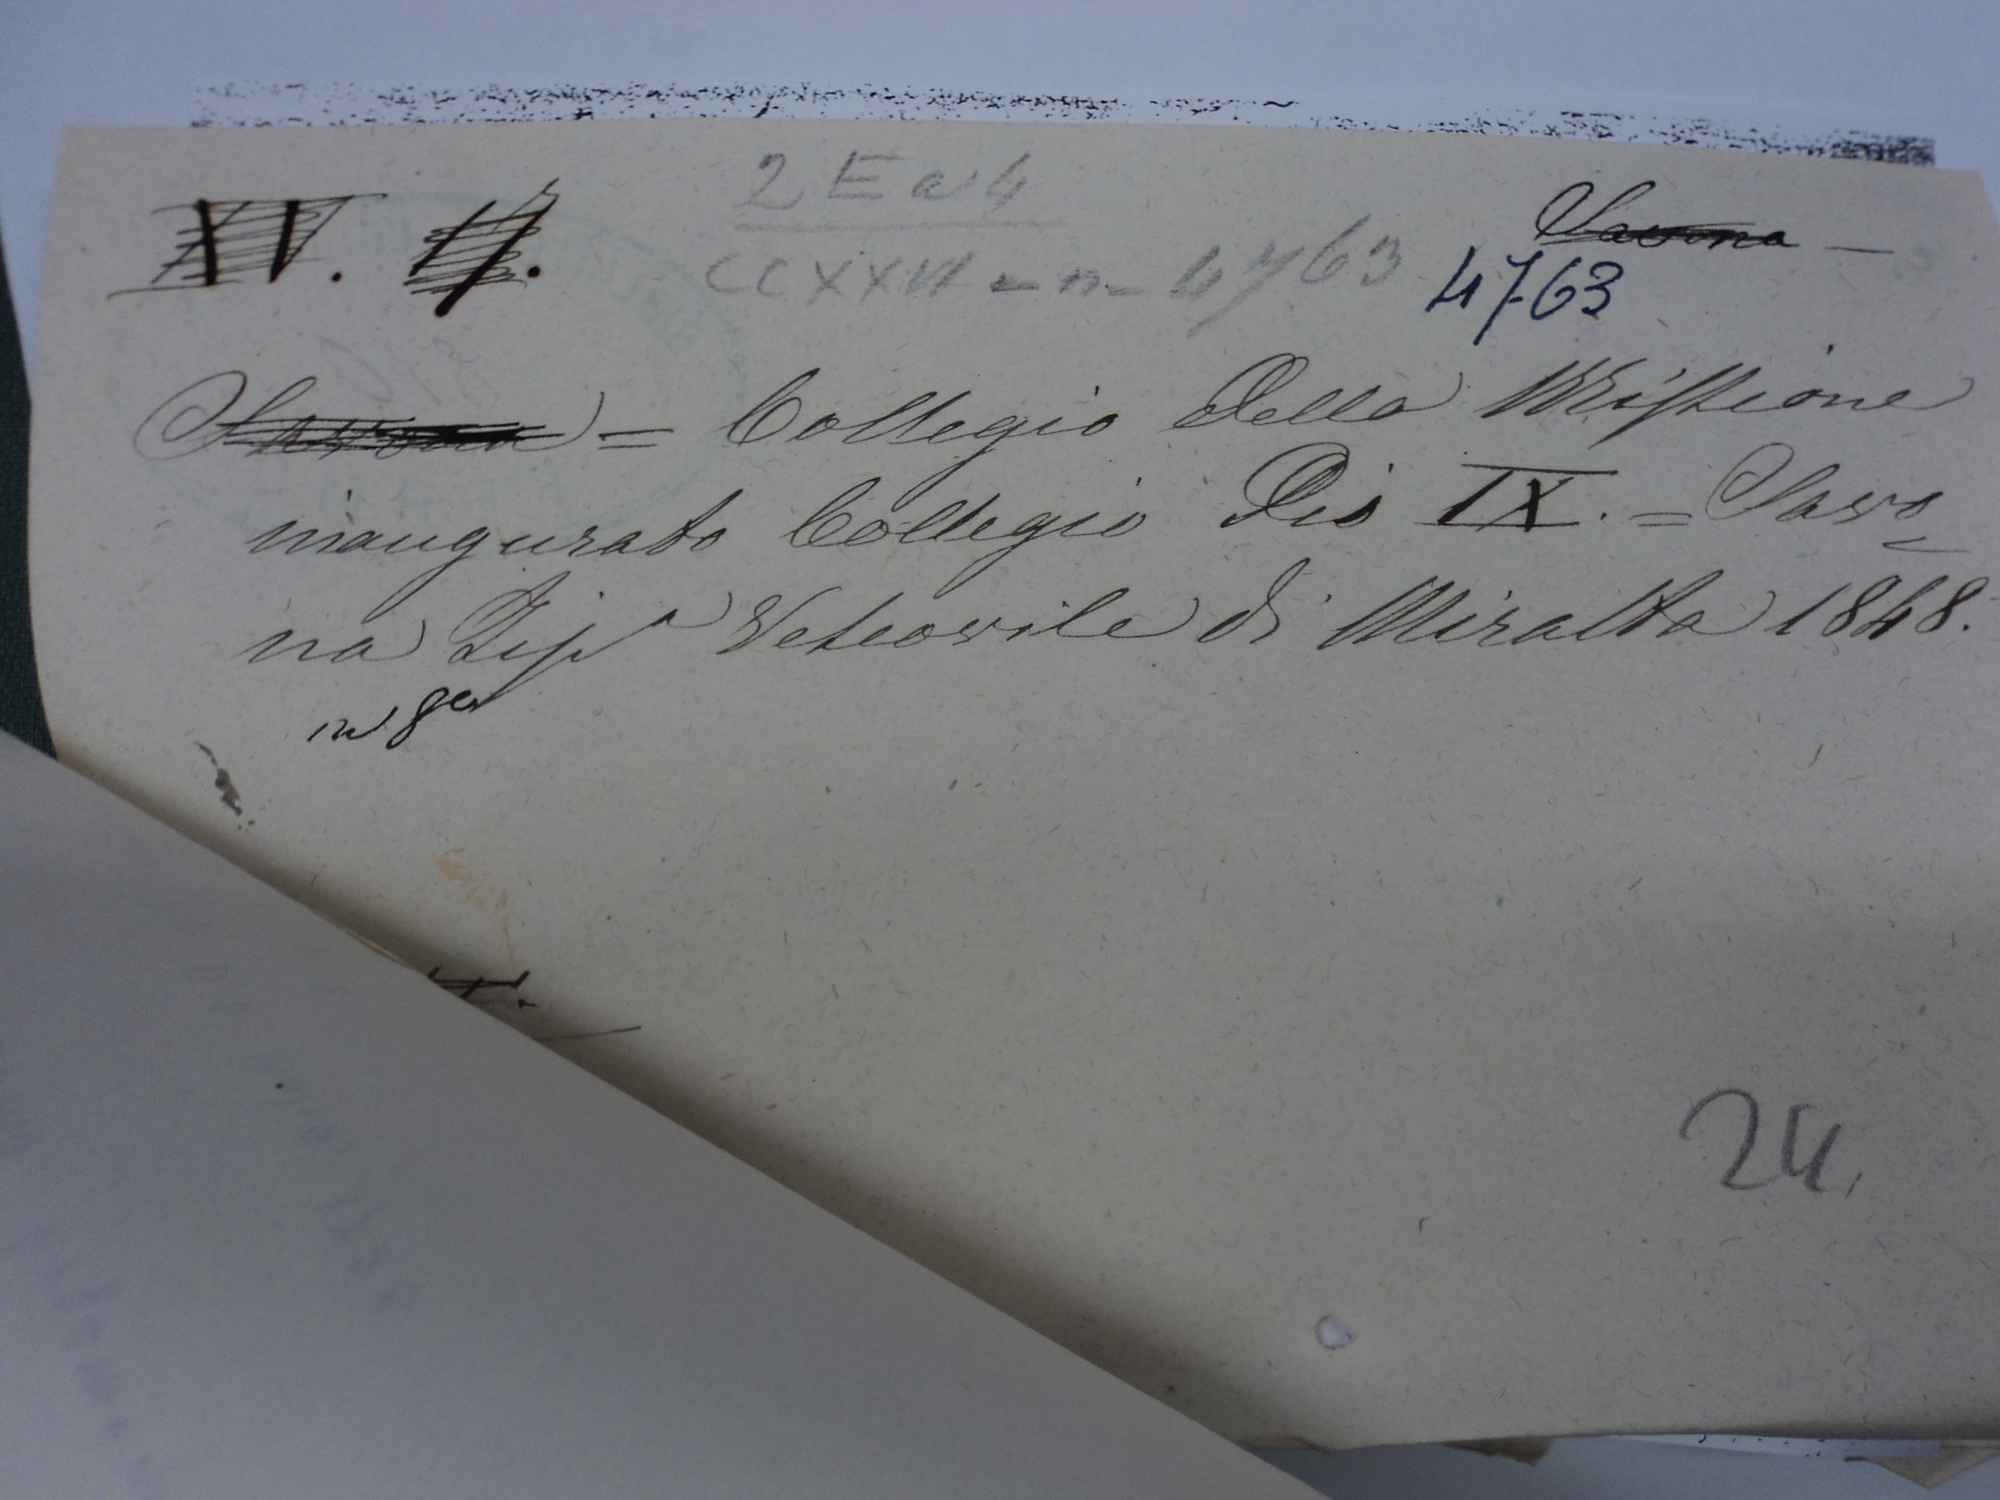 2 E a 4
XV. 4.
Savona
CCXXVI - n - 4763
4763
Savona = Collegio della Missione
inaugurato Collegio Pio IX. = Savo
na Tip.a Vescovile di Miralta 1848.
in 8°
24.